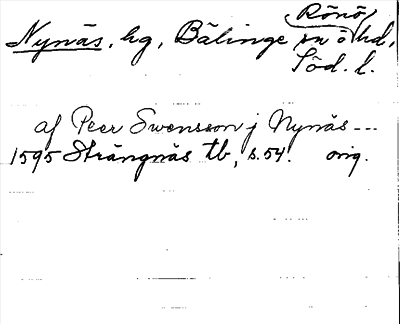 Nynäs, hg, Bälinge sn Rönö hd,
Söd. l.
af Peer Swensson j Nynäs ---
1595 Strängnäs tb, s. 54. orig.